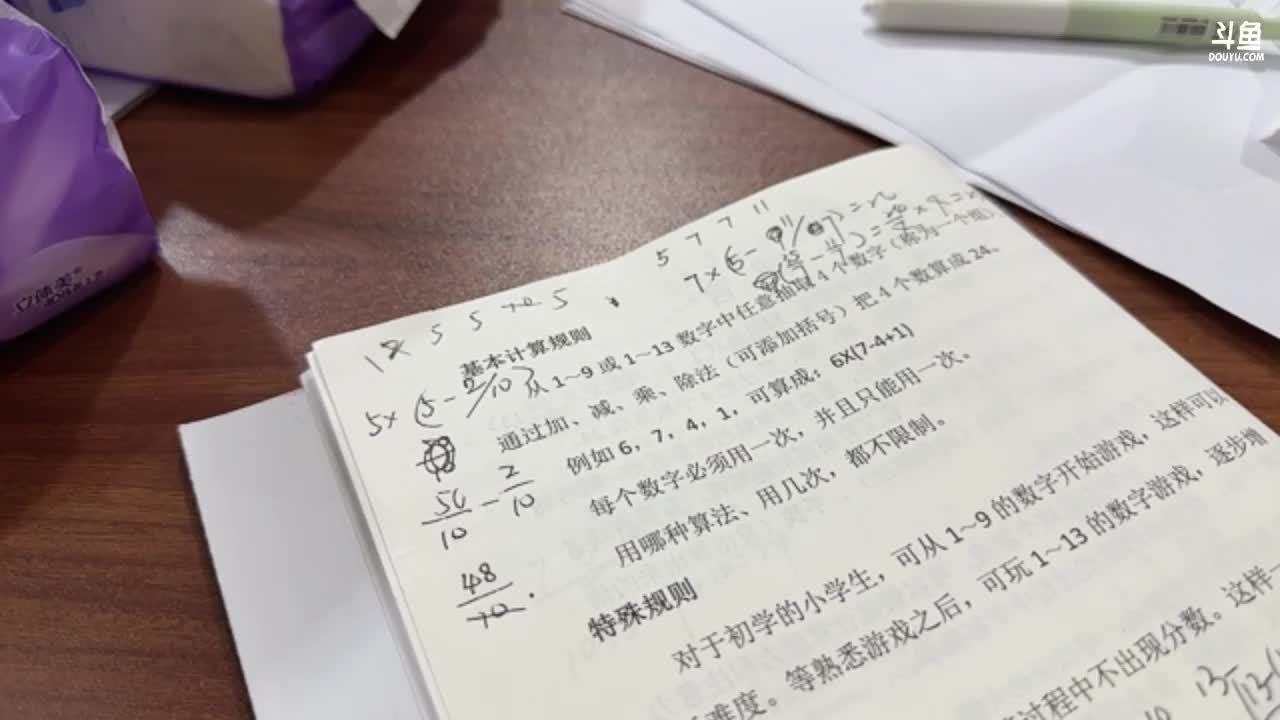 斗鱼
DOUYU.COM
立体美
5 7 7 11
5 5
基本计算规则
从1~9或1~13数字中任意抽取4个数字（称为一个组）
通过加、减、乘、除法（可添加括号）把4个数算成24。
例如6，7，4，1，可算成：6X(7-4+1)
每个数字必须用一次，并且只能用一次。
用哪种算法、用几次，都不限制。
5×(5-2/10)
50/10 - 2/10
48/10
特殊规则
对于初学的小学生，可从1~9的数字开始游戏，这样可以
难度。等熟悉游戏之后，可玩1~13的数字游戏，逐步增
过程中不出现分数。这样一